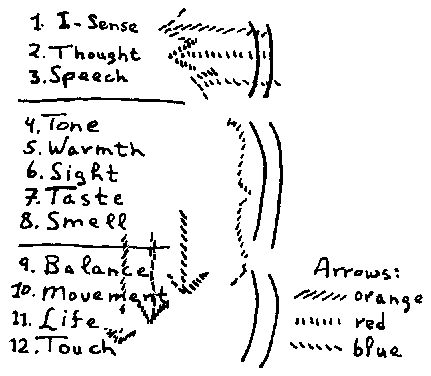 1. I-Sense
2. Thought
3. Speech
4. Tone
5. Warmth
6. Sight
7. Taste
8. Smell
9. Balance
10. Movement
11. Life
12. Touch
Arrows:
orange
red
blue